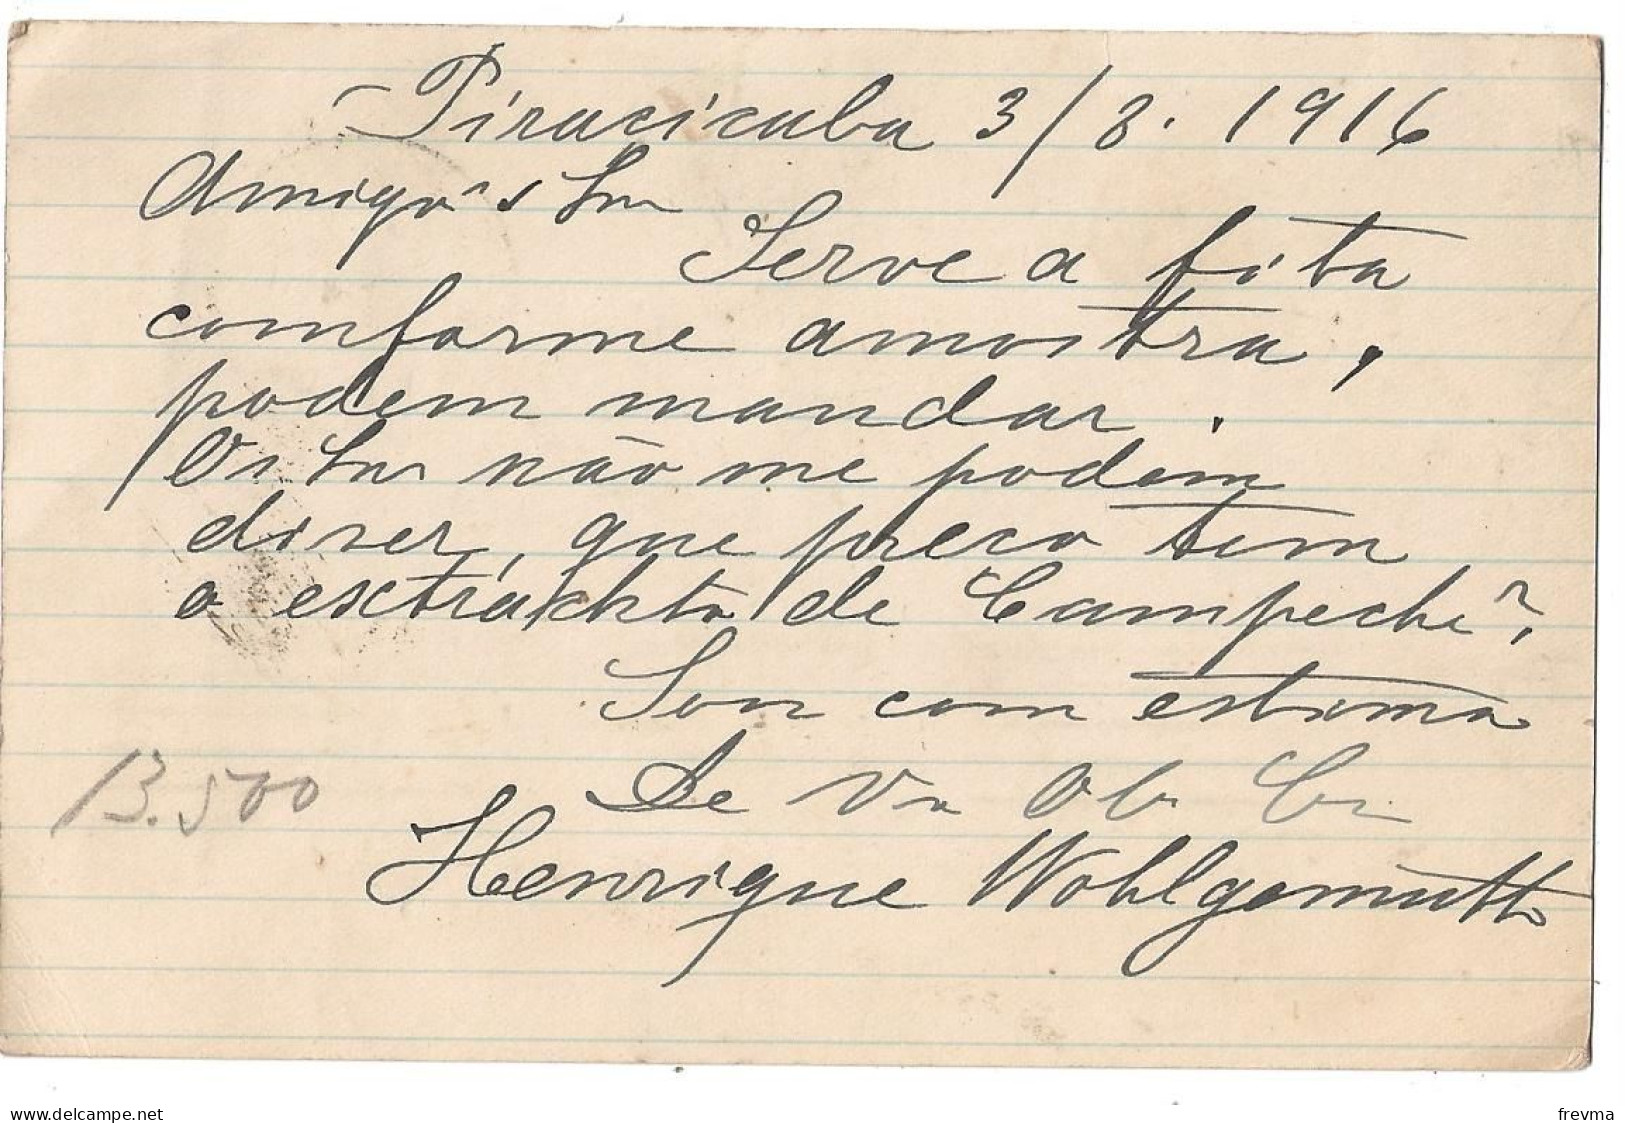 Piracicaba 3/8. 1916
Amigos Snr
Serve a fita
comforme amostra,
podem mandar.
Os Snr não me podem
diser, que preco tem
o extráckto de Campeche?,
Sou com estima
De Va Ob Cr
13.500
Henrique Wohlgemuth
www.delcampe.net
frevma